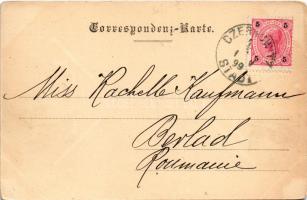 Correspondenz-Karte.
5 5
5 5
CZERNOWITZ
99
STADT
Miss Rachelle Kaufmann
Berlad
Roumanie